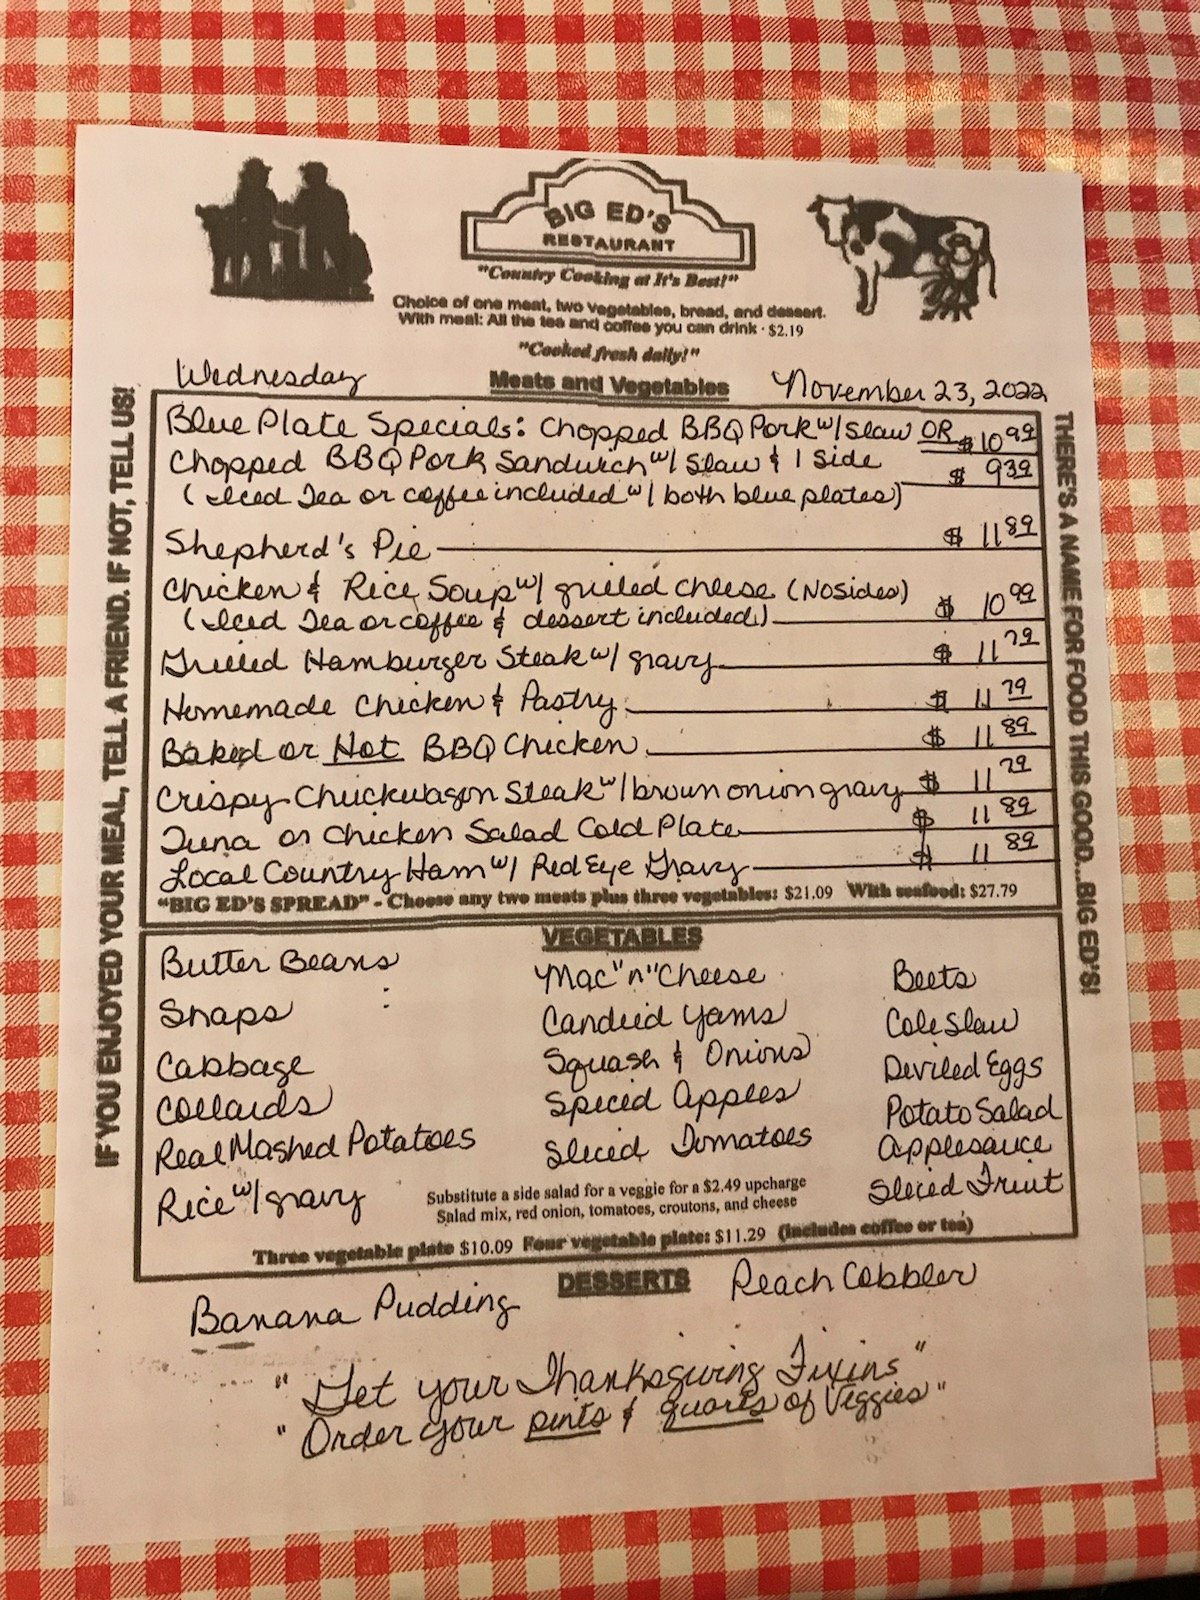 BIG ED'S
RESTAURANT
"Country Cooking at It's Best!"
Choice of one meat, two vegetables, bread, and dessert.
With meal: All the tea and coffee you can drink · $2.19
"Cooked fresh daily!"
Wednesday Meats and Vegetables November 23, 2022
IF YOU ENJOYED YOUR MEAL, TELL A FRIEND. IF NOT, TELL US!
Blue Plate Specials: Chopped BBQ Pork w/ Slaw OR $10.99
Chopped BBQ Pork Sandwich w/ Slaw & 1 Side $ 9.39
(Iced Tea or coffee included w/ both blue plates)
Shepherd's Pie $ 11.89
Chicken & Rice Soup w/ grilled cheese (No sides)
(Iced Tea or coffee & dessert included) $ 10.99
Grilled Hamburger Steak w/ gravy $ 11.79
Homemade Chicken & Pastry $ 11.79
Baked or Hot BBQ Chicken $ 11.89
Crispy Chuckwagon Steak w/ brown onion gravy $ 11.79
Tuna or Chicken Salad Cold Plate $ 11.89
Local Country Ham w/ Red Eye Gravy $ 11.89
"BIG ED'S SPREAD" - Choose any two meats plus three vegetables: $21.09 With seafood: $27.79
THERE'S A NAME FOR FOOD THIS GOOD...BIG ED'S!
VEGETABLES
Butter Beans Mac "n" Cheese Beets
Snaps Candied Yams Cole Slaw
Cabbage Squash & Onions Deviled Eggs
Collards Spiced Apples Potato Salad
Real Mashed Potatoes Sliced Tomatoes Applesauce
Rice w/ gravy Sliced Fruit
Substitute a side salad for a veggie for a $2.49 upcharge
Salad mix, red onion, tomatoes, croutons, and cheese
Three vegetable plate $10.09 Four vegetable plate: $11.29 (includes coffee or tea)
DESSERTS
Banana Pudding Peach Cobbler
"Get your Thanksgiving Fixins"
"Order your pints & quarts of Veggies"